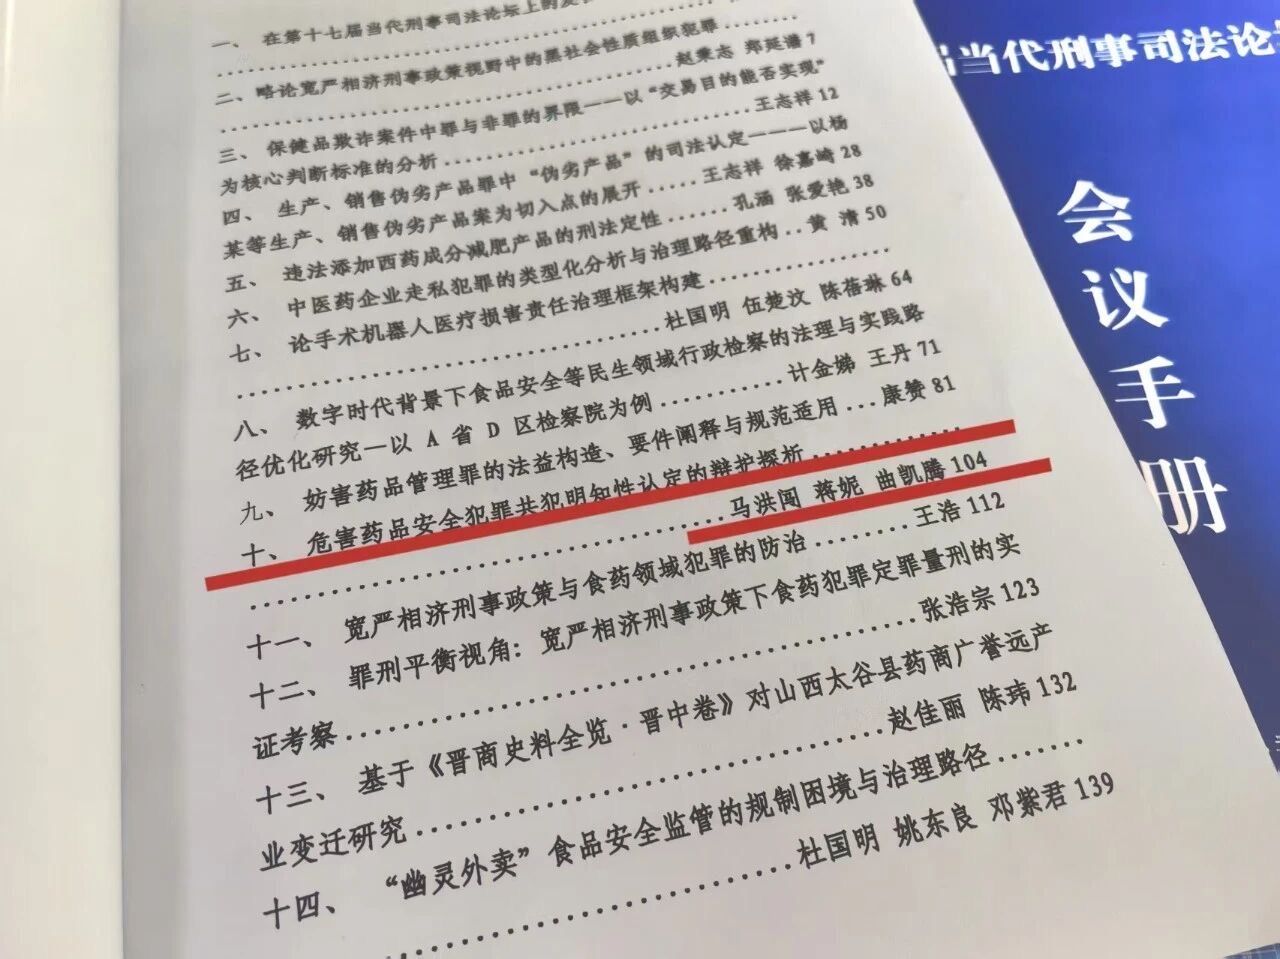 一、 在第十七届当代刑事司法论坛上的
二、略论宽严相济刑事政策视野中的黑社会性质组织犯罪
赵秉志 郑延谱 7
三、 保健品欺诈案件中罪与非罪的界限——以“交易目的能否实现”
为核心判断标准的分析 王志祥 12
四、 生产、销售伪劣产品罪中“伪劣产品”的司法认定———以杨
某等生产、销售伪劣产品案为切入点的展开 王志祥 徐嘉崎 28
五、 违法添加西药成分减肥产品的刑法定性 孔涵 张爱艳 38
六、 中医药企业走私犯罪的类型化分析与治理路径重构 黄 清 50
七、 论手术机器人医疗损害责任治理框架构建
杜国明 伍楚汶 陈蓓琳 64
八、 数字时代背景下食品安全等民生领域行政检察的法理与实践路
径优化研究—以 A 省 D 区检察院为例 计金娣 王丹 71
九、 妨害药品管理罪的法益构造、要件阐释与规范适用 康赞 81
十、 危害药品安全犯罪共犯明知性认定的辩护探析
马洪闯 蒋妮 曲凯腾 104
十一、 宽严相济刑事政策与食药领域犯罪的防治 王浩 112
十二、 罪刑平衡视角：宽严相济刑事政策下食药犯罪定罪量刑的实
证考察 张浩宗 123
十三、 基于《晋商史料全览·晋中卷》对山西太谷县药商广誉远产
业变迁研究 赵佳丽 陈玮 132
十四、 “幽灵外卖”食品安全监管的规制困境与治理路径
杜国明 姚东良 邓紫君 139
届当代刑事司法论
会议手册